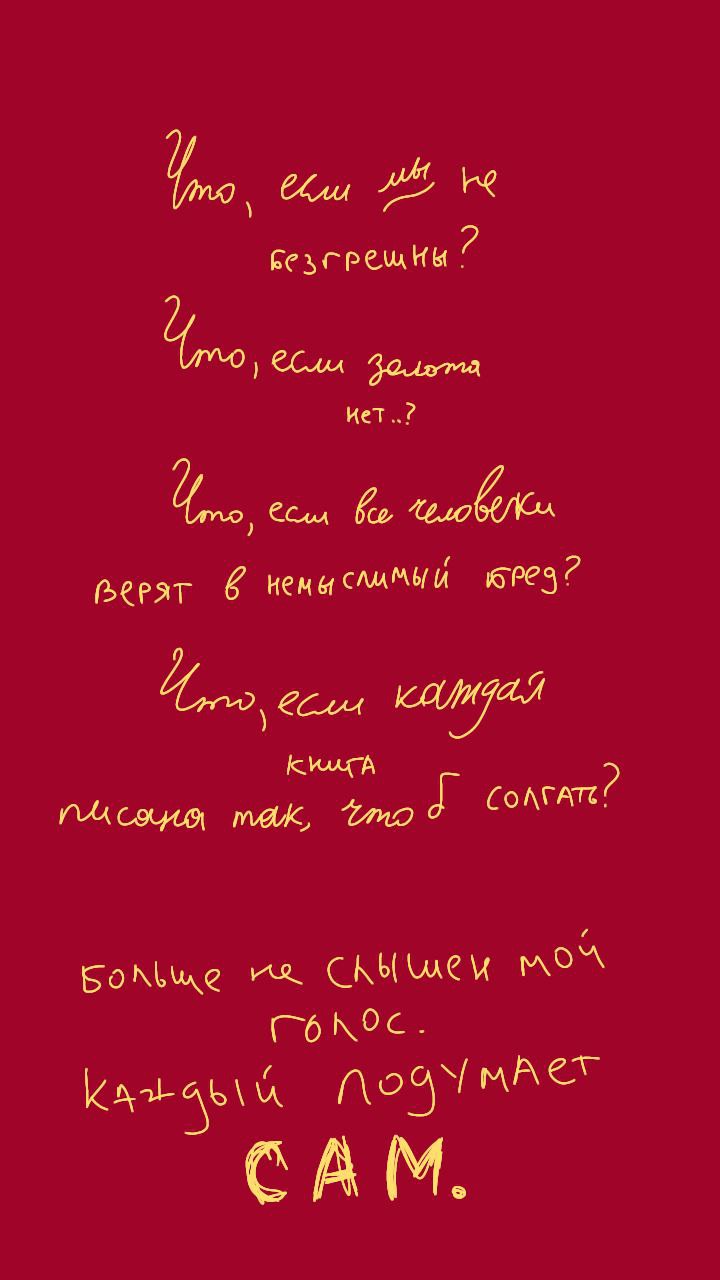 Что, если мы не
безгрешны?
Что, если золота
нет..?
Что, если все человеки
верят в немыслимый бред?
Что, если каждая
книга
писана так, что б солгать?
Больше не слышен мой
голос.
Каждый подумает
САМ.